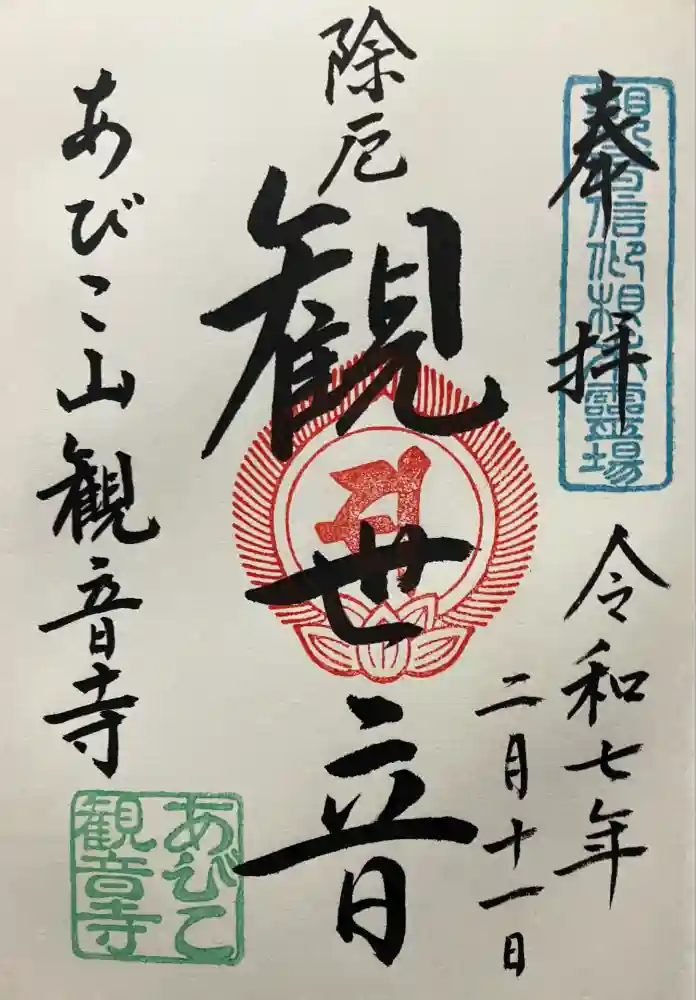 奉拝
観音信仰根本霊場
令和七年
二月十一日
除厄
観世音
あびこ山観音寺
あびこ
観音寺